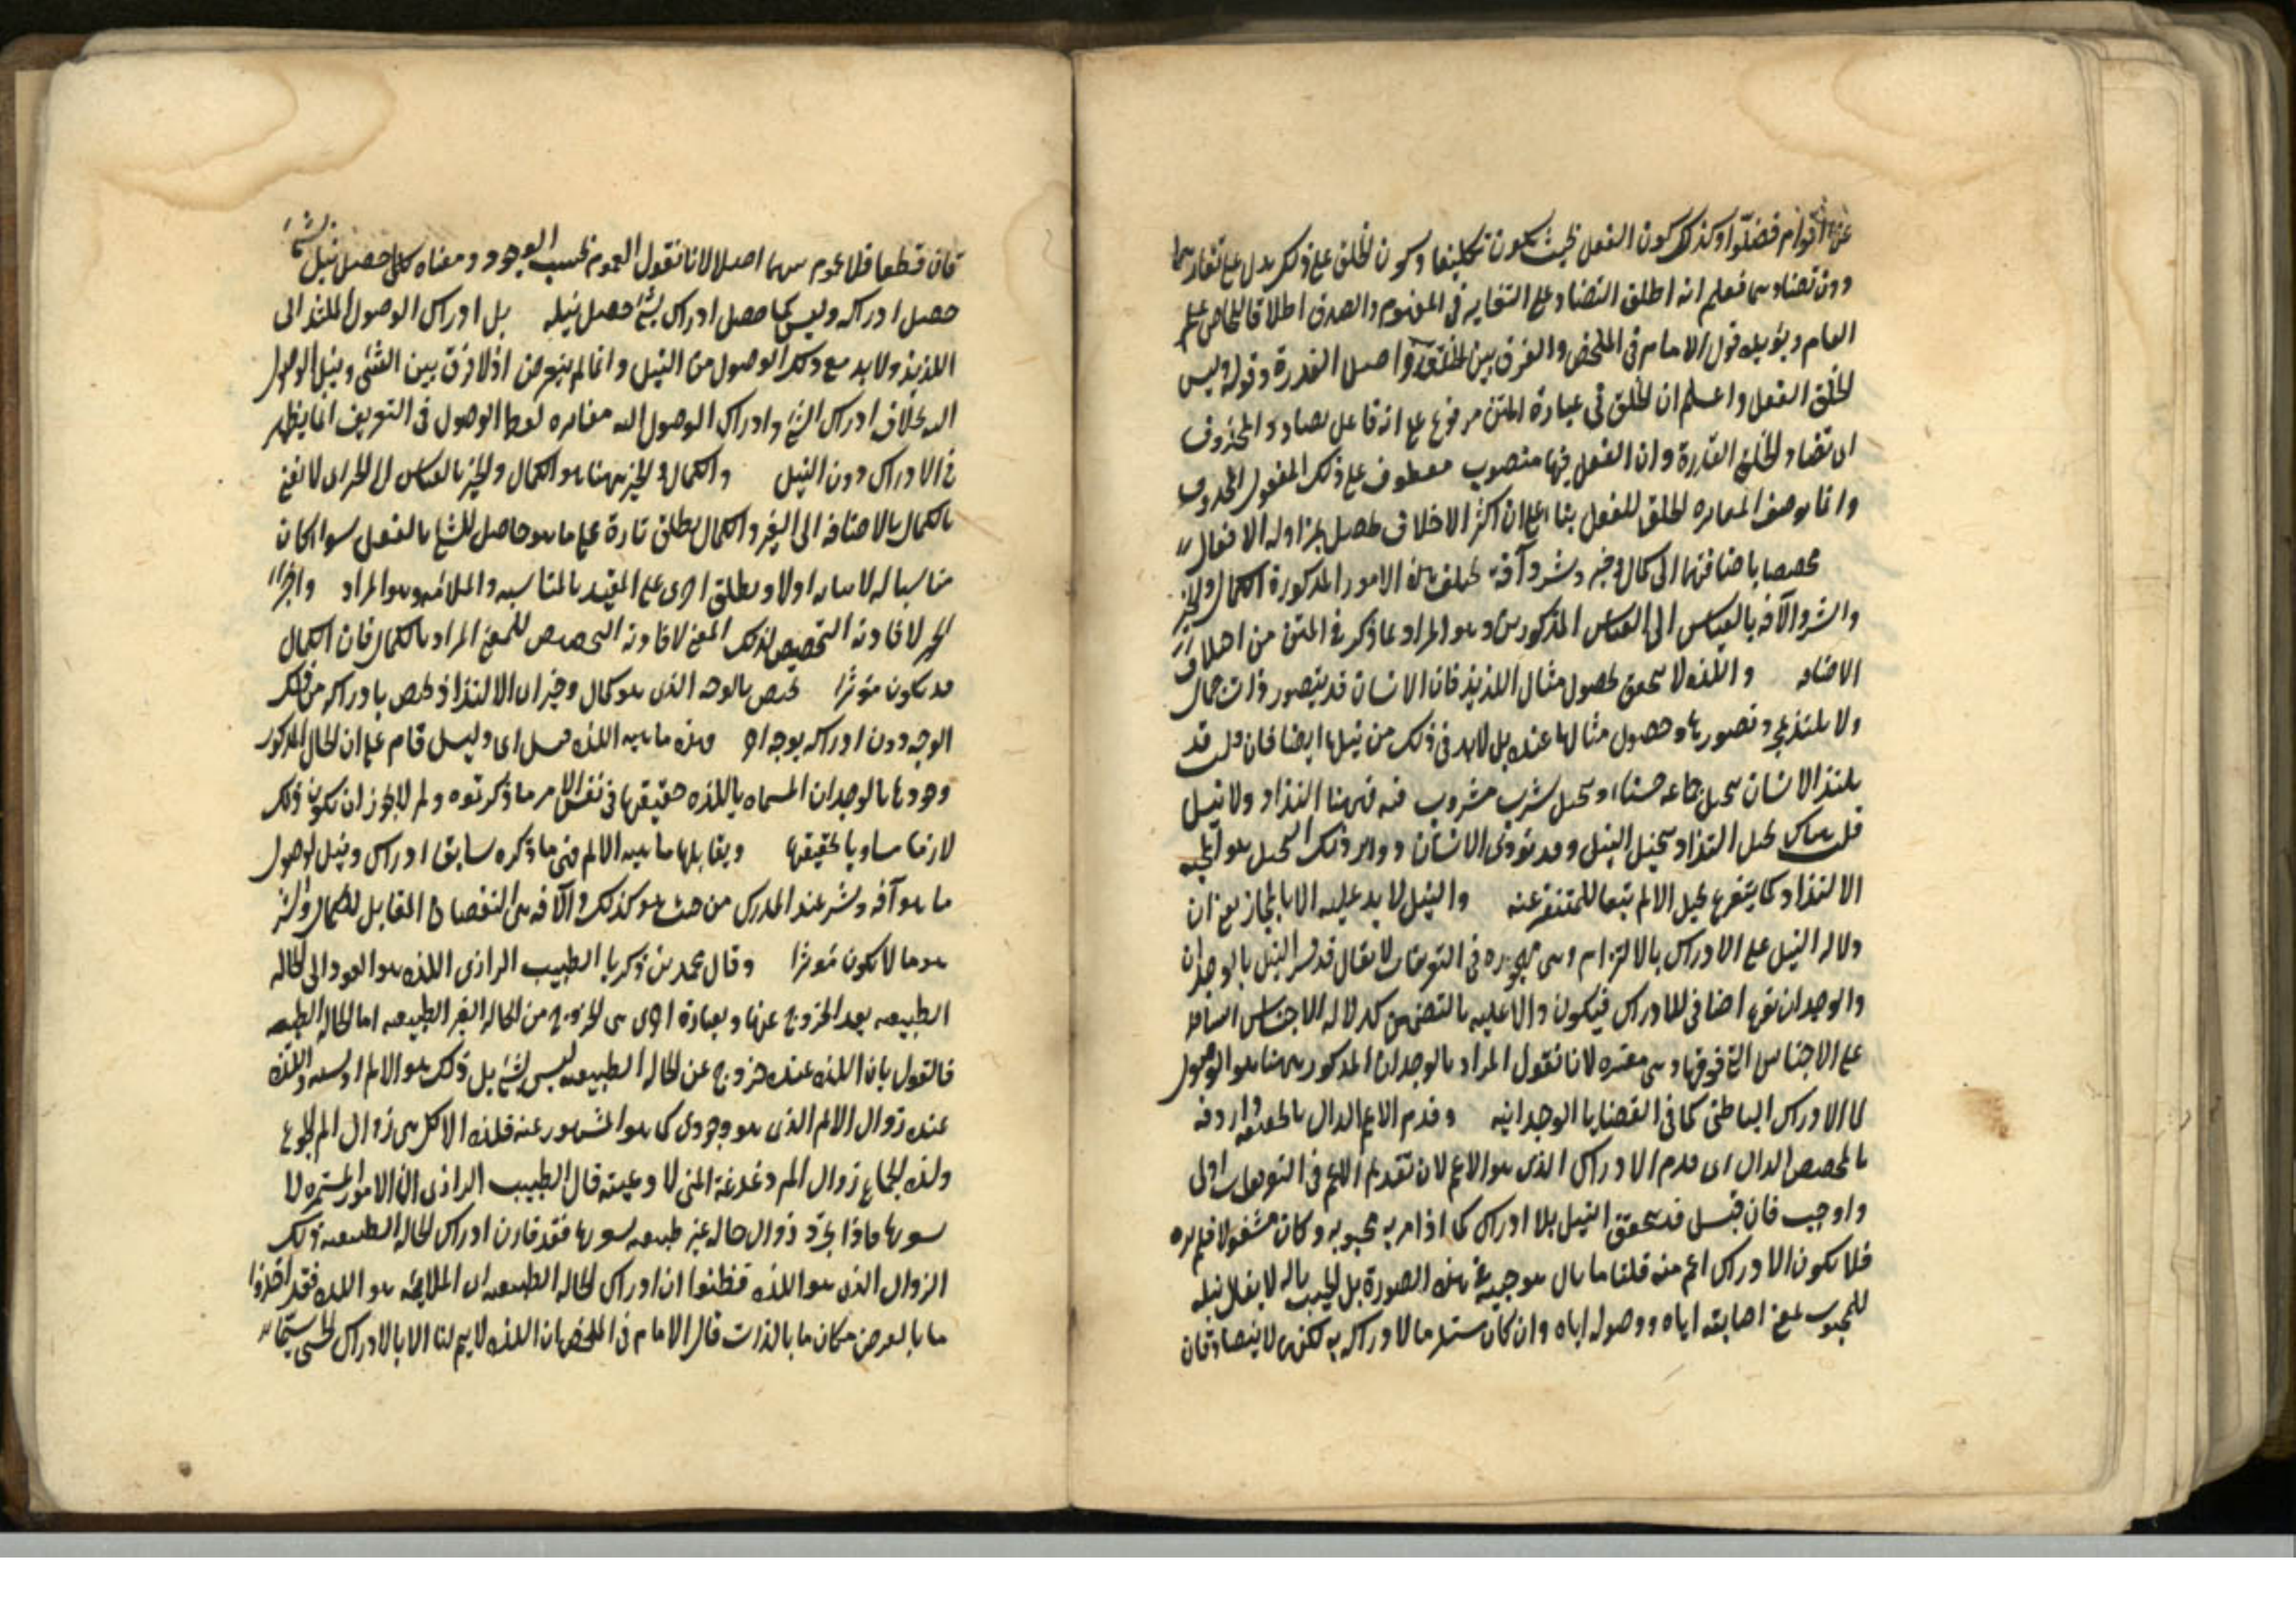 عن اقوام فضلوا وكذلك كون الفعل بحيث يكون تكليفا وكون الخلق على ذلك يدل على تغايرهما
دون تضادهما فعلم انه اطلق التضاد على التغاير في المفهوم والصدق اطلاقا للخاص على
العام ويؤيده قول الامام في الملخص والفرق بين الخلق واصل القدرة وقوله وليس
الخلق الفعل واعلم ان الخلق في عبارة المتن مرفوع على انه فاعل يضاد والمحذوف
اى تضاد الخلق القدرة وان الفعل فيها منصوب معطوف على ذلك المفعول المحذوف
وانما الخلق للفعل بناء على ان اكثر الاخلاق يحصل بمزاولة الافعال
باضافتها الى كمال وخير وشر وآفة يختلف هذه الامور المذكورة الكمال والخير
والشر والآفة بالقياس الى المذكورين وهو المراد بما ذكر في المتن من اختلاف
الاضافه واللذه لا تحصل بحصول مثال اللذيذ فان الانسان قد يتصور ذات جمال
ولا يلتذ بمجرد تصورها وحصول مثالها عنده بل لابد في ذلك من نيلها ايضا فان قلت قد
يلتذ الانسان بتخيل جماعه حسناء وتخيل شرب مشروب فهنا التذاذ ولا نيل
قلت هناك تخيل التذاذ بتخيل النيل
الالتذاذ كما يتفرع تخيل الالم عنه والنيل لا يدل عليه الا بالمجاز يعنى ان
دلاله النيل على الادراك بالالتزام وهى مهجوره فى التعريفات لا يقال قد فسر النيل بالوجدان
والوجدان نوع اضافى للادراك فيكون دالا عليه بالتضمن كدلاله الاجناس السافله
على الاجناس التى فوقها وهى معتبره لانا نقول المراد بالوجدان المذكور ههنا هو الوصول
لا الادراك الباطنى كما فى القضايا الوجدانيه وقدم الاعم الدال بالحقيقه واردفه
بالمخصص الدال اى قدم الادراك الذى هو الاعم لان تقديم الاعم فى التعريفات اولى
واوجب فان قيل قد يتحقق النيل بلا ادراك كما اذا مر به محبوبه وكان مشغولا فلم يره
فلا يكون الادراك اعم منه قلنا هذه الصورة بل لا يقال نيله
للمحبوب بمعنى اصابته اياه ووصوله اياه وان كان مستلزما لادراكه لا يتصادقان
فان قطعا فلا عموم بينهما اصلا لانا نقول العموم بحسب الوجود ومعناه كلما حصل نيل شئ
حصل ادراكه وليس كلما حصل ادراك شئ حصل نيله بل ادراك الوصول الملتذ الى
اللذيذ ولابد مع ذلك الوصول من النيل وانما لم يتعرض اذ لا فرق بين الشئ ونيل الوصول
اليه بخلاف ادراك الشئ وادراك الوصول اليه لفظ الوصول فى التعريف انما يظهر
فى الادراك دون النيل والكمال والخير ههنا هو الكمال والخير بالقياس
بالاضافه الى الغير والكمال يطلق تارة على ما هو حاصل للشئ بالفعل سواء كان
مناسبا له اولا ويطلق اخرى على المقيد بالمناسبه والملائمه وهو المراد واخر
الخير لافادته التخصيص لذلك المعنى لافادته التخصيص للمعنى المراد بالكمال فان الكمال
قد يكون مؤثرا يختص بالوجه الذى هو كمال وخير اى الالتذاذ يختص بادراكه من ذلك
الوجه دون ادراكه بوجه اخر وهذه ماهيه اللذه قيل اى دليل قام على ان الحال المذكور
وجودها بالوجدان المسماه باللذه حقيقتها فى نفس الامر ما ذكرتموه ولم لا يجوز ان يكون ذلك
لازما مساويا لحقيقتها ويقابلها ماهيه الالم فهى ما ذكره سابقا ادراك ونيل لوصول
ما هو آفه وشر عند المدرك من حيث هو كذلك والآفه هى النقصان المقابل للكمال والشر
هو ما لا يكون مؤثرا وقال محمد بن زكريا الطبيب الرازى اللذه هو العود الى الحاله
الطبيعيه بعد الخروج عنها وبعبارة اخرى هى الخروج من الحاله الغير الطبيعيه اما الحاله الطبيعيه
فالقول بان اللذه عنده خروج عن الحاله الطبيعيه ليس بشئ بل ذلك هو الالم واللذه
عنده زوال الالم الذى هو وجودى كما هو المشهور عنه فلذه الاكل هى زوال الم الجوع
ولذه الجماع زوال الم دغدغة المنى لاوعيته قال الطبيب الرازى ان الامور المستمره لا
يشعر بها فاذا تجدد زوال حاله غير طبيعيه يشعر بها فقد قارن ادراك الحاله الطبيعيه ذلك
الزوال الذى هو اللذه فظنوا ان ادراك الحاله الطبيعيه اى الملائمه هو اللذه فقد اخذوا
ما بالعرض مكان ما بالذات قال الامام فى الملخص ان اللذه لا يتم لنا الا بالادراك